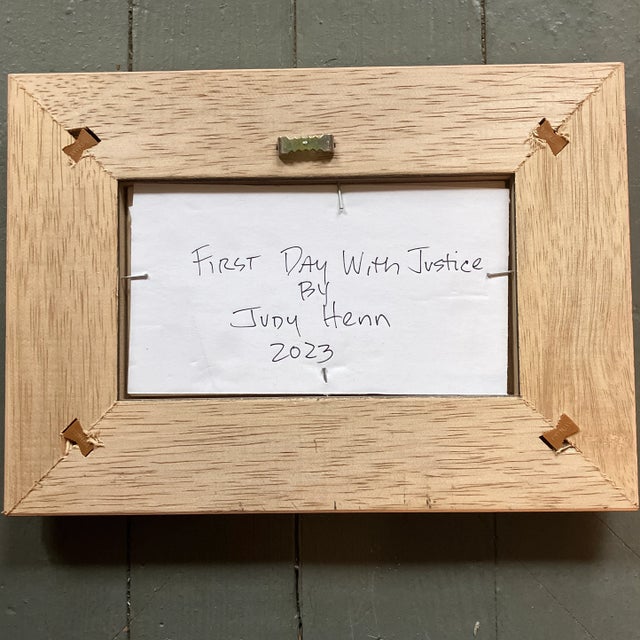 First Day With Justice
By
Judy Henn
2023